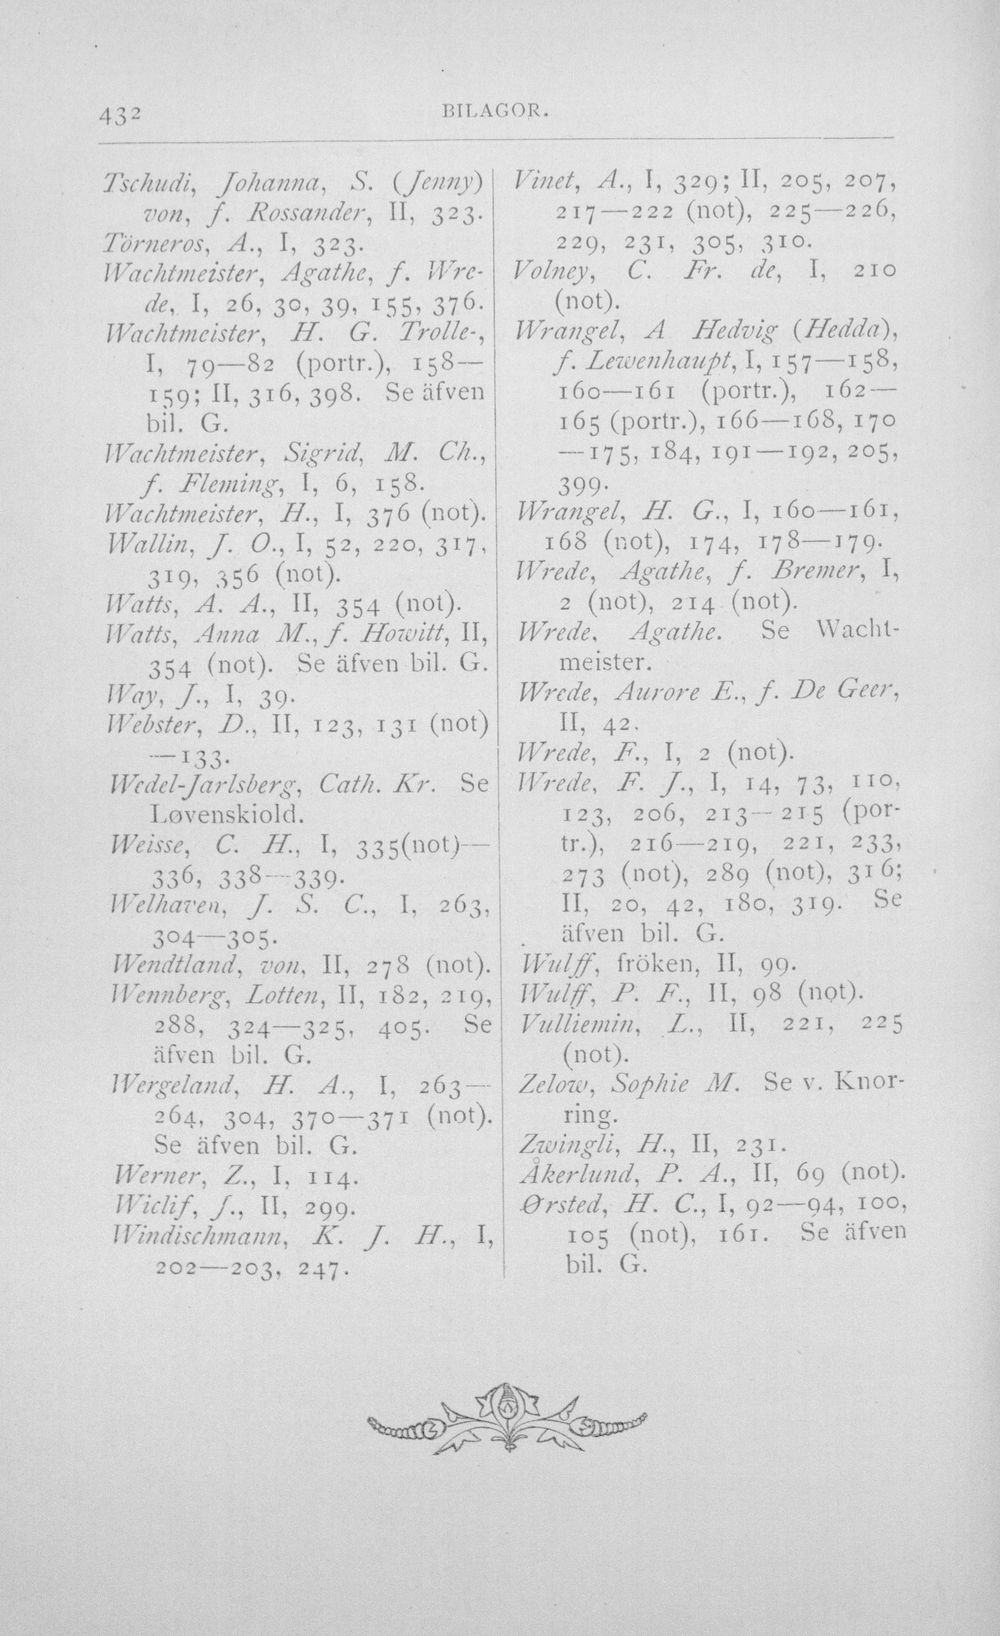 432
BILAGOR.
Tschudi, Johanna, S. (Jenny)
von, f. Rossander, II, 323.
Törneros, A., I, 323.
Wachtmeister, Agathe, f. Wre-
de, I, 26, 30, 39, 155, 376.
Wachtmeister, H. G. Trolle-,
I, 79—82 (portr.), 158—
159; II, 316, 398. Se äfven
bil. G.
Wachtmeister, Sigrid, M. Ch.,
f. Fleming, I, 6, 158.
Wachtmeister, H., I, 376 (not).
Wallin, J. O., I, 52, 220, 317,
319, 356 (not).
Watts, A. A., II, 354 (not).
Watts, Anna M., f. Howitt, II,
354 (not). Se äfven bil. G.
Way, J., I, 39.
Webster, D., II, 123, 131 (not)
—133.
Wedel-Jarlsberg, Cath. Kr. Se
Løvenskiold.
Weisse, C. H., I, 335(not)—
336, 338—339.
Welhaven, J. S. C., I, 263,
304—305.
Wendtland, von, II, 278 (not).
Wennberg, Lotten, II, 182, 219,
288, 324—325, 405. Se
äfven bil. G.
Wergeland, H. A., I, 263—
264, 304, 370—371 (not).
Se äfven bil. G.
Werner, Z., I, 114.
Wiclif, J., II, 299.
Windischmann, K. J. H., I,
202—203, 247.
Vinet, A., I, 329; II, 205, 207,
217—222 (not), 225—226,
229, 231, 305, 310.
Volney, C. Fr. de, I, 210
(not).
Wrangel, A Hedvig (Hedda),
f. Lewenhaupt, I, 157—158,
160—161 (portr.), 162—
165 (portr.), 166—168, 170
—175, 184, 191—192, 205,
399.
Wrangel, H. G., I, 160—161,
168 (not), 174, 178—179.
Wrede, Agathe, f. Bremer, I,
2 (not), 214 (not).
Wrede, Agathe. Se Wacht-
meister.
Wrede, Aurore E., f. De Geer,
II, 42.
Wrede, F., I, 2 (not).
Wrede, F. J., I, 14, 73, 110,
123, 206, 213—215 (por-
tr.), 216—219, 221, 233,
273 (not), 289 (not), 316;
II, 20, 42, 180, 319. Se
äfven bil. G.
Wulff, fröken, II, 99.
Wulff, P. F., II, 98 (not).
Vulliemin, L., II, 221, 225
(not).
Zelow, Sophie M. Se v. Knor-
ring.
Zwingli, H., II, 231.
Åkerlund, P. A., II, 69 (not).
Ørsted, H. C., I, 92—94, 100,
105 (not), 161. Se äfven
bil. G.